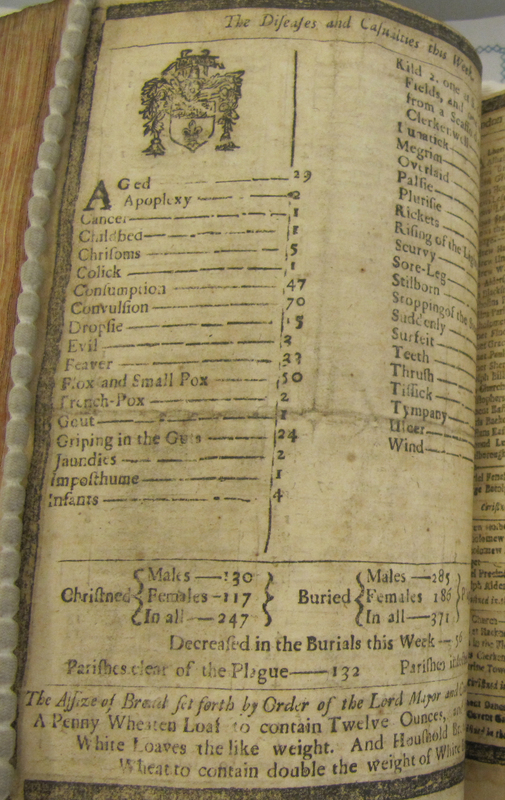 The Diſeaſes and Caſualties this Week.
AGed — 29
Apoplexy — 2
Cancer — 1
Childbed — 1
Chriſoms — 5
Colick — 1
Conſumption — 47
Convulſion — 70
Dropſie — 15
Evil — 3
Feaver — 33
Flox and Small Pox — 50
French-Pox — 2
Gout — 1
Griping in the Guts — 24
Jaundies — 2
Impoſthume — 1
Infants — 4
Kild 2. one
Fields, and
from a Scaffo
Clerkenwell
Lunatick
Megrim
Overlaid
Palſie
Pluriſie
Rickets
Riſing of the
Scurvy
Sore-Leg
Stilborn
Stopping of the
Suddenly
Surfeit
Teeth
Thruſh
Tiſſick
Tympany
Ulcer
Wind
Chriſtned { Males — 130
Females — 117
In all — 247 }
Buried { Males — 185
Females 186
In all — 371 }
Decreaſed in the Burials this Week —
Pariſhes clear of the Plague — 132 Pariſhes
The Aſſize of Bread ſet forth by Order of the Lord Mayor and
A Penny Wheaten Loaf to contain Twelve Ounces,
White Loaves the like weight. And Houſhold
Wheat to contain double the weight of White